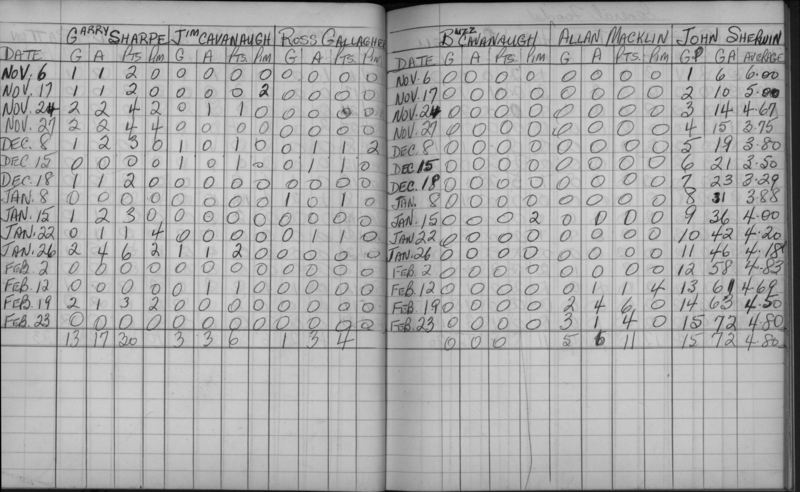 GARRY SHARPE JIM CAVANAUGH ROSS GALLAGHER
DATE G A Pts. Pim G A Pts. Pim G A Pts. Pim
NOV. 6 1 1 2 0 0 0 0 0 0 0 0 0
NOV. 17 1 1 2 0 0 0 0 2 0 0 0 0
NOV. 24 2 2 4 2 0 1 1 0 0 0 0 0
NOV. 27 2 2 4 4 0 0 0 0 0 0 0 0
DEC. 8 1 2 3 0 1 0 1 0 0 1 1 2
DEC 15 0 0 0 0 1 0 1 0 0 1 1 0
DEC. 18 1 1 2 0 0 0 0 0 0 0 0 0
JAN. 8 0 0 0 0 0 0 0 0 1 0 1 0
JAN. 15 1 2 3 0 0 0 0 0 0 0 0 0
JAN. 22 0 1 1 4 0 0 0 0 0 1 1 0
JAN. 26 2 4 6 2 1 1 2 0 0 0 0 0
FEB. 2 0 0 0 0 0 0 0 0 0 0 0 0
FEB. 12 0 0 0 0 0 1 1 0 0 0 0 0
FEB. 19 2 1 3 2 0 0 0 0 0 0 0 0
FEB. 23 0 0 0 0 0 0 0 0 0 0 0 0
13 17 20 3 3 6 1 3 4
BUZZ CAVANAUGH ALLAN MACKLIN JOHN SHERWIN
DATE G A Pts. Pim G A Pts. Pim GP GA AVERAGE
NOV. 6 0 0 0 0 0 0 0 0 1 6 6.00
NOV. 17 0 0 0 0 0 0 0 0 2 10 5.00
NOV. 24 0 0 0 0 0 0 0 0 3 14 4.67
NOV. 27 0 0 0 0 0 0 0 0 4 15 3.75
DEC. 8 0 0 0 0 0 0 0 0 5 19 3.80
DEC 15 0 0 0 0 0 0 0 0 6 21 3.50
DEC. 18 0 0 0 0 0 0 0 0 7 23 3.29
JAN. 8 0 0 0 0 0 0 0 0 8 31 3.88
JAN. 15 0 0 0 2 0 0 0 0 9 36 4.00
JAN 22 0 0 0 0 0 0 0 0 10 42 4.20
JAN. 26 0 0 0 0 0 0 0 0 11 46 4.18
FEB. 2 0 0 0 0 0 0 0 0 12 58 4.83
FEB. 12 0 0 0 0 0 1 1 4 13 61 4.69
FEB. 19 0 0 0 0 2 4 6 0 14 63 4.50
FEB. 23 0 0 0 0 3 1 4 0 15 72 4.80
0 0 0 5 6 11 15 72 4.80